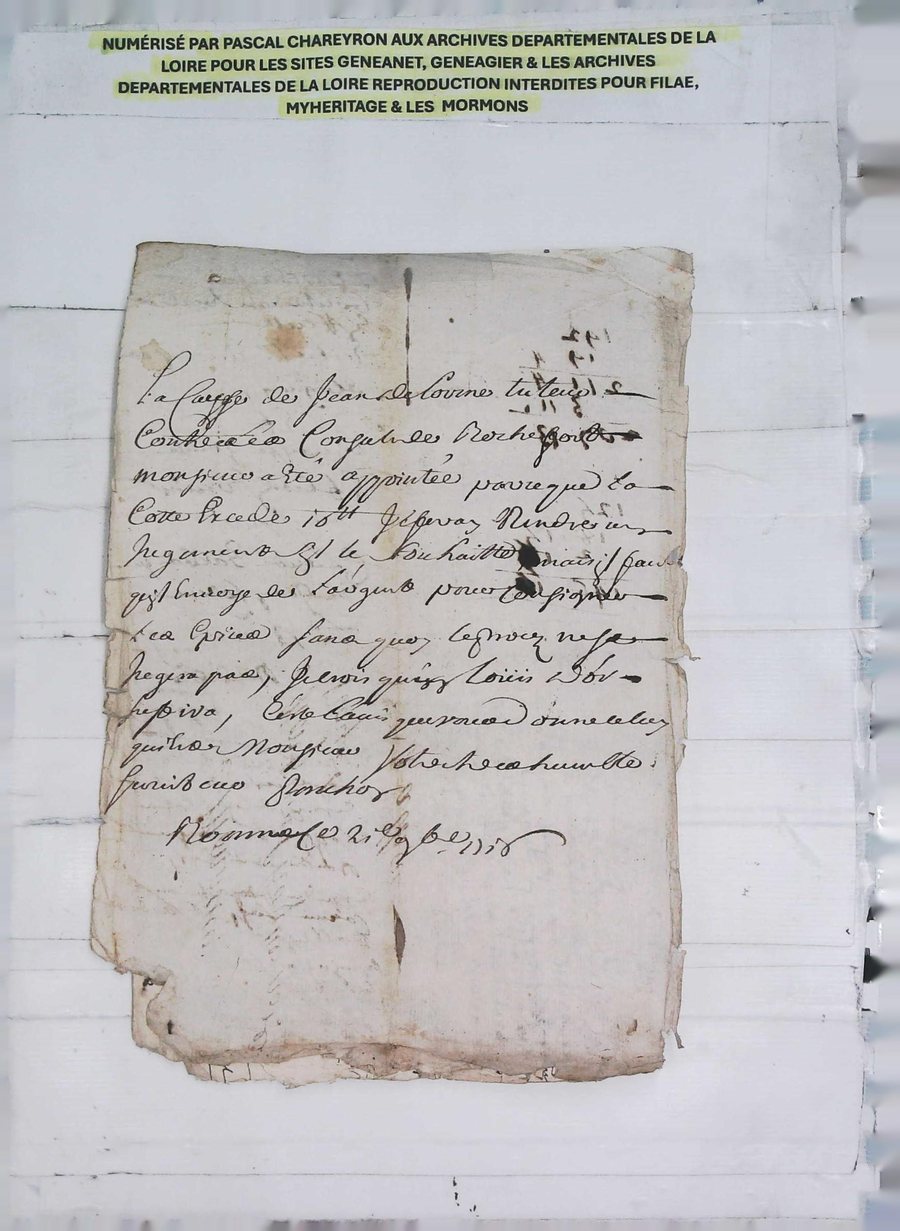 NUMÉRISÉ PAR PASCAL CHAREYRON AUX ARCHIVES DEPARTEMENTALES DE LA
LOIRE POUR LES SITES GENEANET, GENEAGIER & LES ARCHIVES
DEPARTEMENTALES DE LA LOIRE REPRODUCTION INTERDITES POUR FILAE,
MYHERITAGE & LES MORMONS
La Cause de Jean de Lovine tuteur
Contre Les Consuls de Rochefort
monsieur a Eté appointée parce que La
Cotte Excede 10ᵗᵗ Je feray Rendre un
Jugement Sil le Souhaitte mais Il faut
quil Envoye de L'argent pour Consigner
Les Epices sans quoy le procez ne se
Jugera pas, Je crois quun Louis d'or
suffira, C'est L'avis que vous donne celuy
qui Est Monsieur Votre tres humble
serviteur
Roanne Ce 21ᵉ 9bre